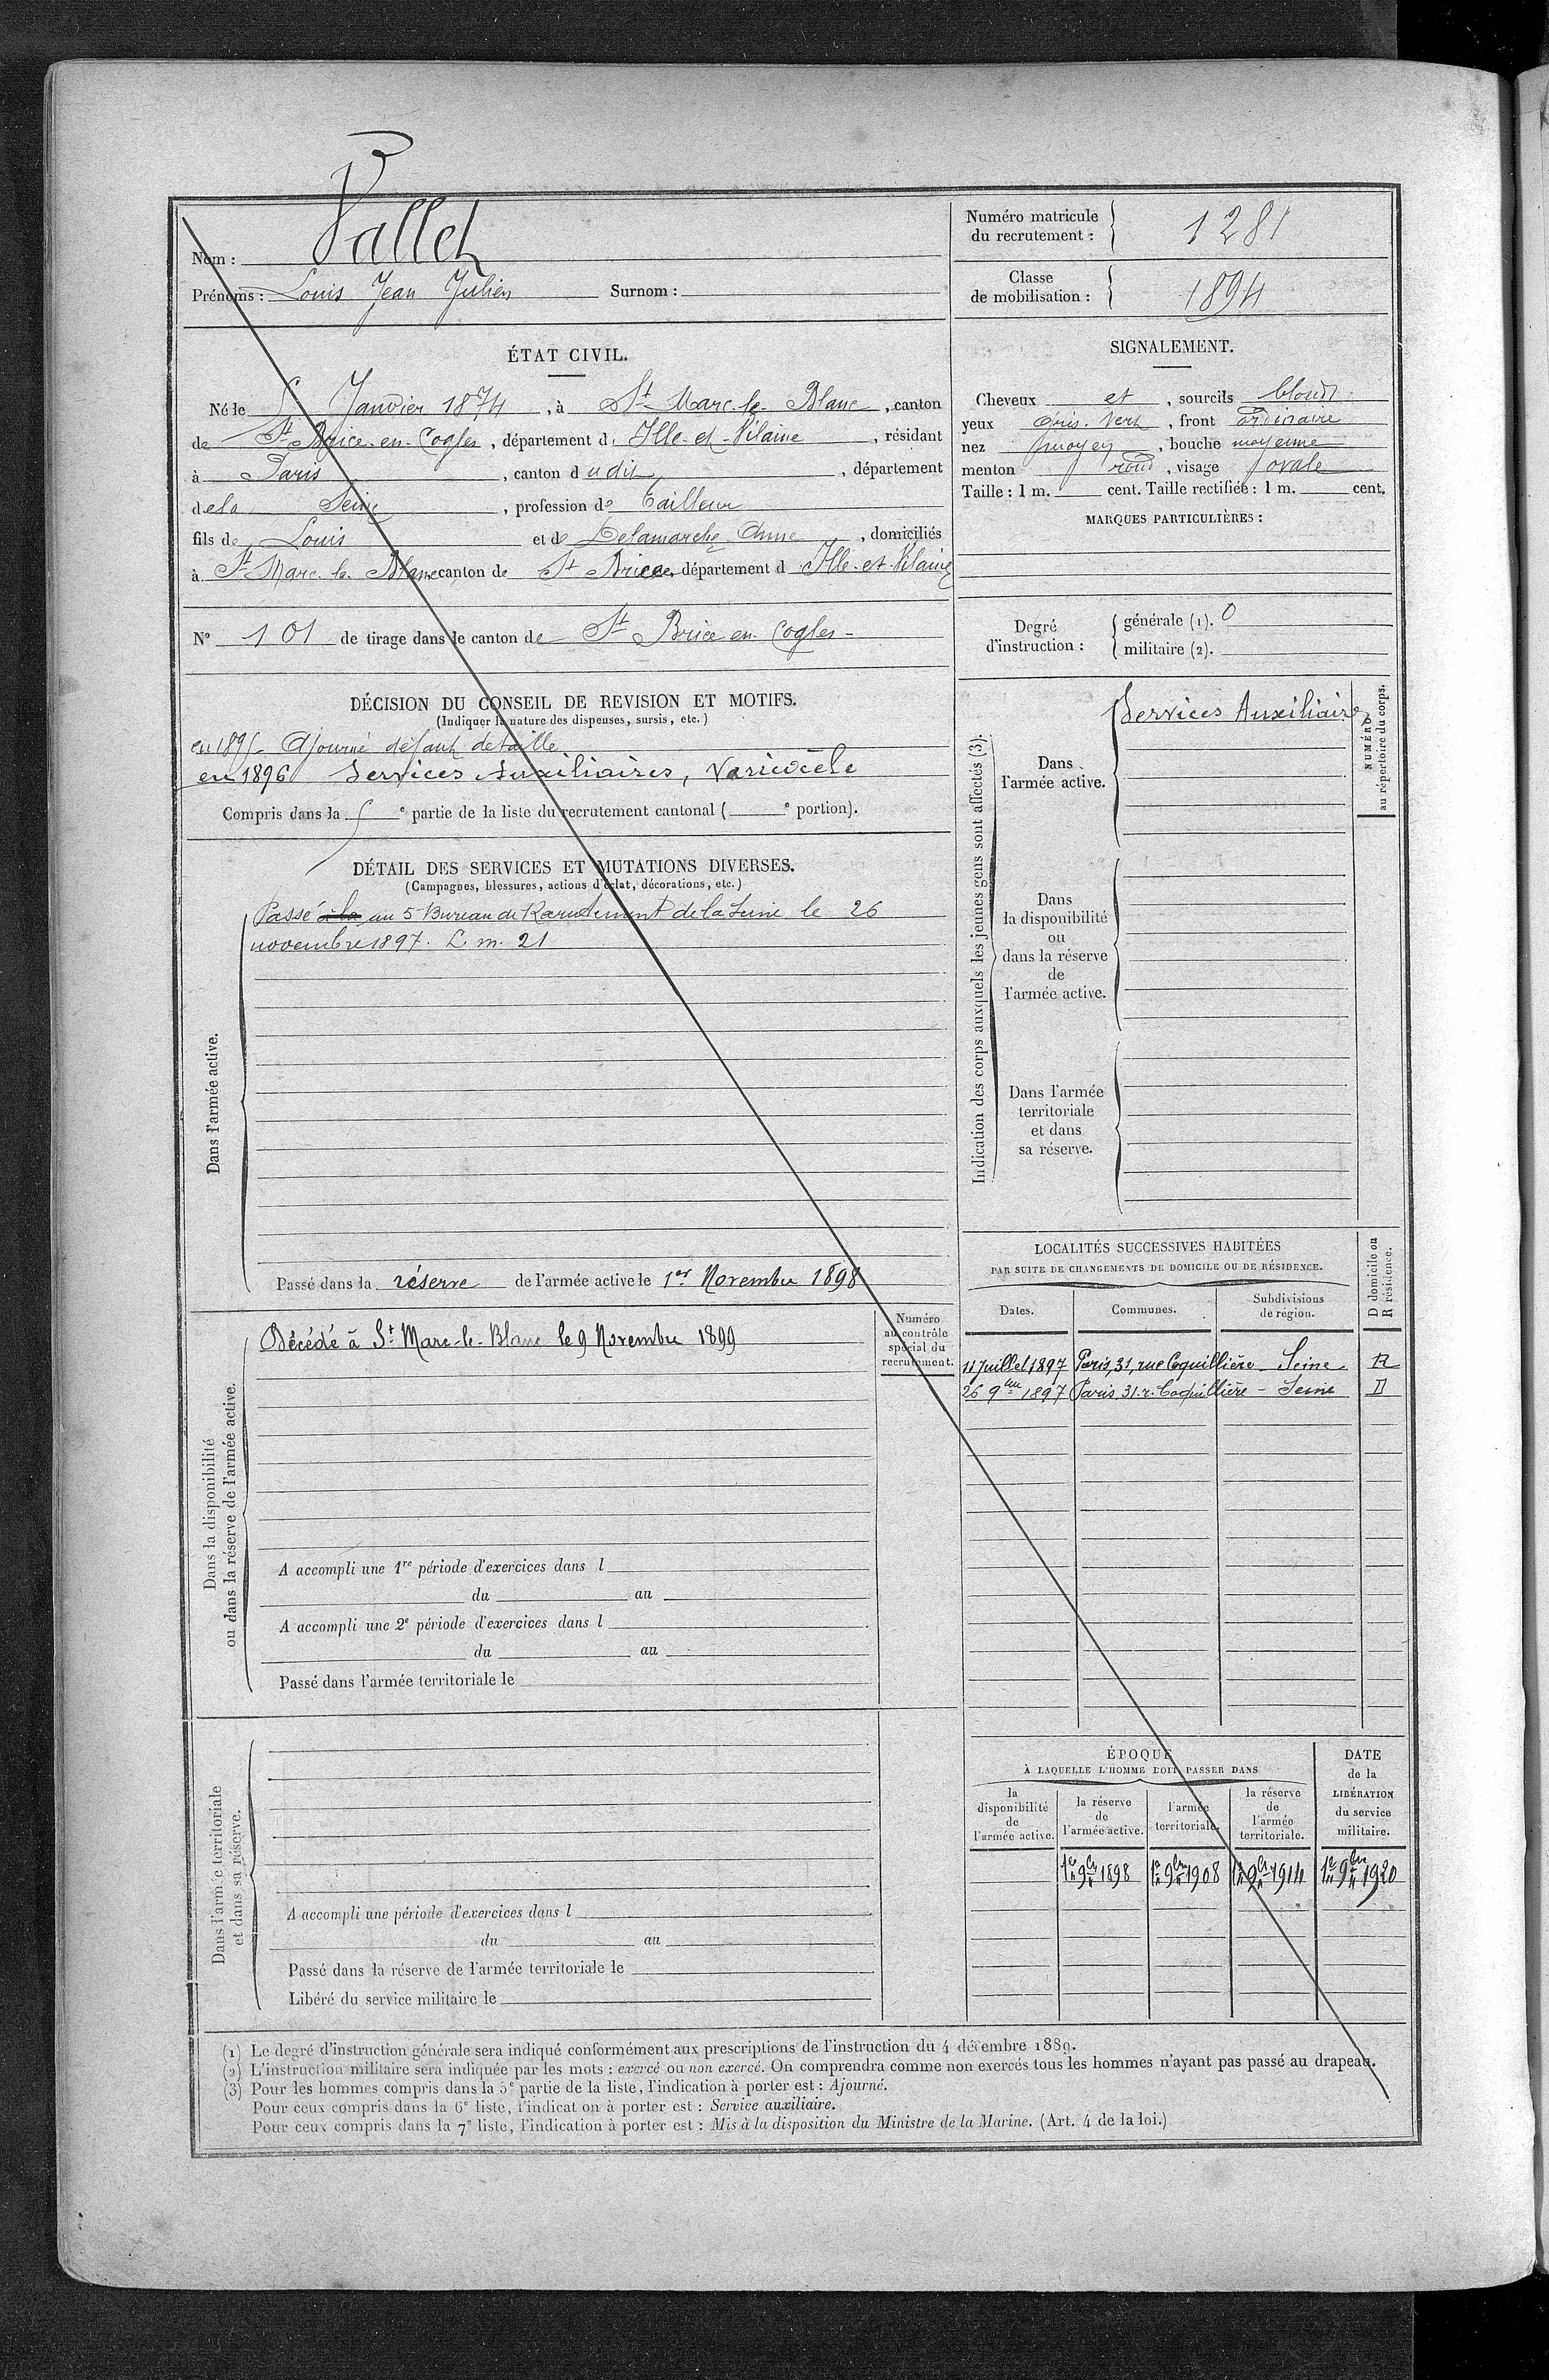 Nom : Vallet
Prénoms : Louis Jean Julien Surnom :
Numéro matricule
du recrutement : 1281
Classe
de mobilisation : 1894
ÉTAT CIVIL.
Né le 5 Janvier 1874, à St Marc-le-Blanc, canton
de St Brice-en-Cogles, département d'Ille-et-Vilaine, résidant
à Paris, canton dudit, département
dela Seine, profession de Tailleur
fils de Louis et de Delamarche Anne, domiciliés
à St Marc-le-Blanc canton de St Brice, département d Ille-et-Vilaine
N° 101 de tirage dans le canton de St Brice en Cogles -
DÉCISION DU CONSEIL DE REVISION ET MOTIFS.
(Indiquer la nature des dispenses, sursis, etc.)
en 1895 Ajourné défaut de taille
en 1896 Services Auxiliaires, Varicocèle
Compris dans la e partie de la liste du recrutement cantonal ( e portion).
DÉTAIL DES SERVICES ET MUTATIONS DIVERSES.
(Campagnes, blessures, actions d'éclat, décorations, etc.)
Dans l'armée active.
Passé à la au 5 Bureau de Recrutement de la Seine le 26
novembre 1897. L. m. 21
Passé dans la réserve de l'armée active le 1er Novembre 1898
Dans la disponibilité
ou dans la réserve de l'armée active.
Décédé à St Marc-le-Blanc le 9 Novembre 1899
Numéro
au contrôle
spécial du
recrutement.
A accompli une 1re période d'exercices dans l
du au
A accompli une 2e période d'exercices dans l
du au
Passé dans l'armée territoriale le
Dans l'armée territoriale
et dans sa réserve.
A accompli une période d'exercices dans l
du au
Passé dans la réserve de l'armée territoriale le
Libéré du service militaire le
SIGNALEMENT.
Cheveux et, sourcils blonds
yeux gris-vert, front ordinaire
nez moyen, bouche moyenne
menton rond, visage ovale
Taille : 1 m. cent. Taille rectifiée : 1 m. cent.
MARQUES PARTICULIÈRES :
Degré
d'instruction :
générale (1). 0
militaire (2).
Indication des corps auxquels les jeunes gens sont affectés (3).
NUMÉRO
au répertoire du corps.
Services Auxiliaires
Dans
l'armée active.
Dans
la disponibilité
ou
dans la réserve
de
l'armée active.
Dans l'armée
territoriale
et dans
sa réserve.
LOCALITÉS SUCCESSIVES HABITÉES
PAR SUITE DE CHANGEMENTS DE DOMICILE OU DE RÉSIDENCE.
D domicile ou
R résidence.
Dates. Communes. Subdivisions
de région.
11 Juillet 1897 Paris, 31, rue Coquillière - Seine - R
26 9bre 1897 Paris, 31. r. Coquillière - Seine D
ÉPOQUE
À LAQUELLE L'HOMME DOIT PASSER DANS
DATE
de la
LIBÉRATION
du service
militaire.
la
disponibilité
de
l'armée active.
la réserve
de
l'armée active.
l'armée
territoriale.
la réserve
de
l'armée
territoriale.
1er 9bre 1898 1er 9bre 1908 1er 9bre 1914 1er 9bre 1920
(1) Le degré d'instruction générale sera indiqué conformément aux prescriptions de l'instruction du 4 décembre 1889.
(2) L'instruction militaire sera indiquée par les mots : exercé ou non exercé. On comprendra comme non exercés tous les hommes n'ayant pas passé au drapeau.
(3) Pour les hommes compris dans la 5e partie de la liste, l'indication à porter est : Ajourné.
Pour ceux compris dans la 6e liste, l'indication à porter est : Service auxiliaire.
Pour ceux compris dans la 7e liste, l'indication à porter est : Mis à la disposition du Ministre de la Marine. (Art. 4 de la loi.)